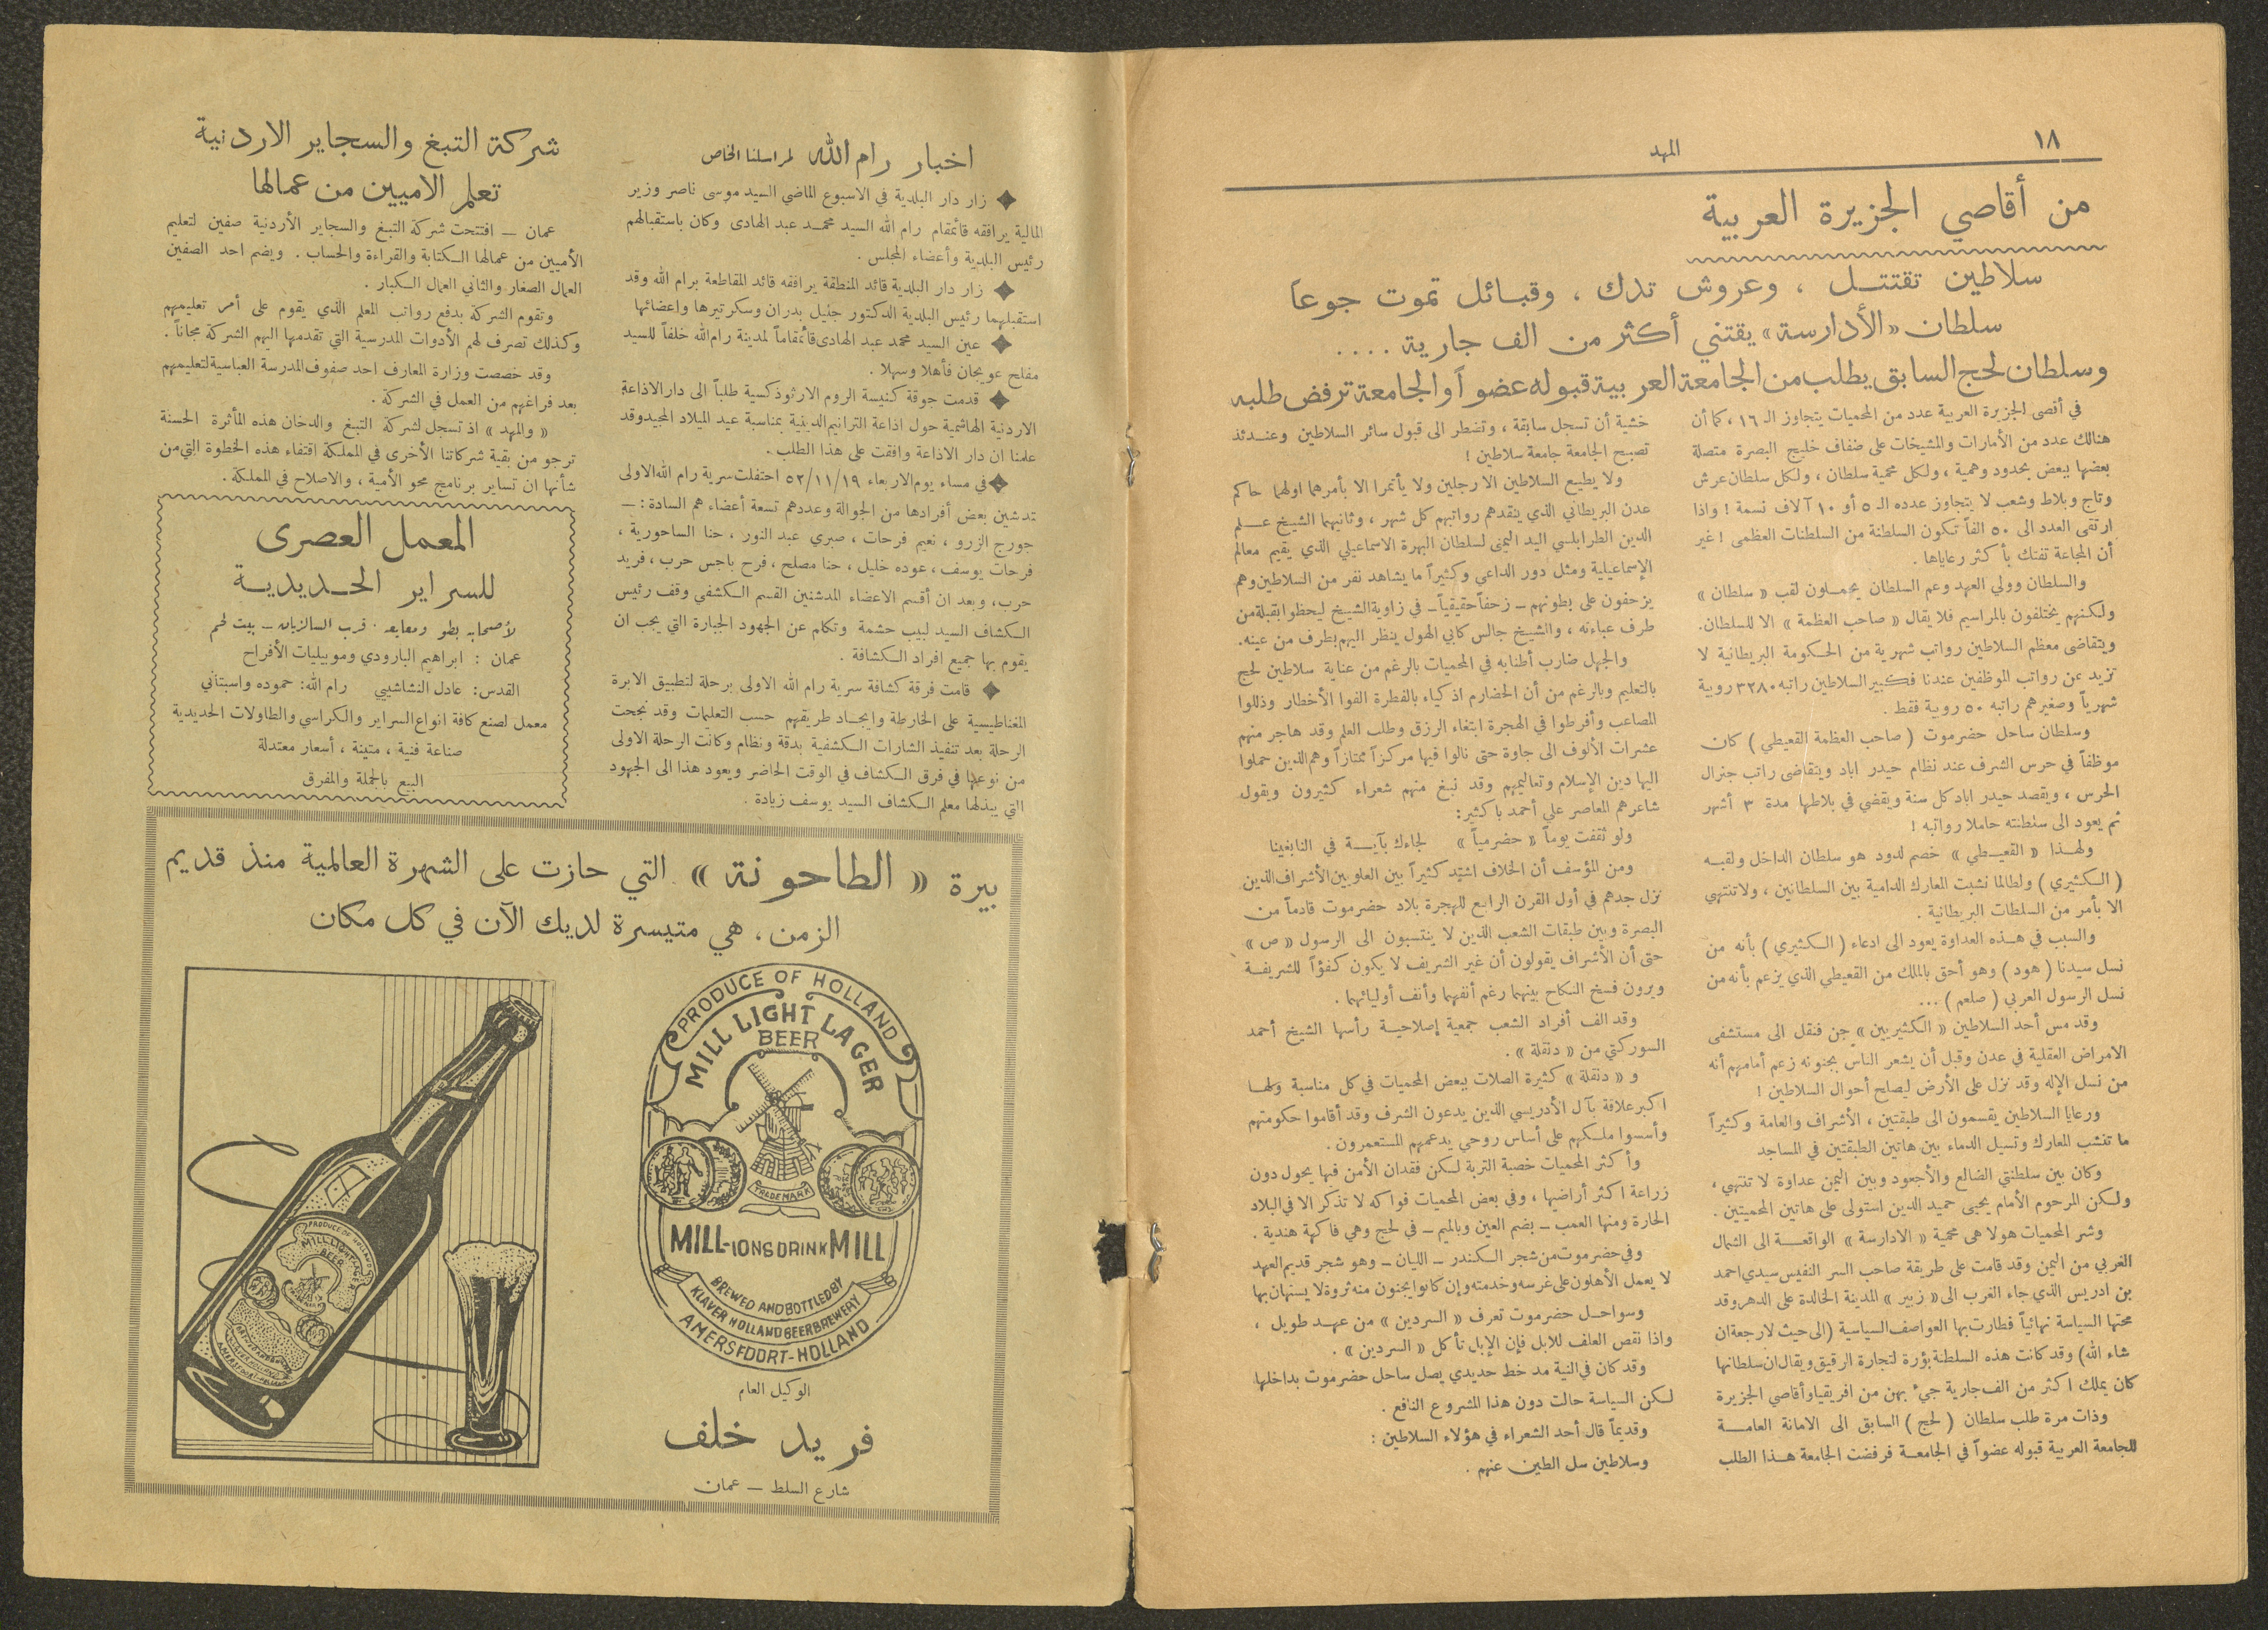 ١٨
المهد
من أقاصي الجزيرة العربية
سلاطين تقتتل ، وعروش تدك ، وقبائل تموت جوعاً
سلطان «الأدارسة» يقتني أكثر من الف جارية ....
وسلطان لحج السابق يطلب من الجامعة العربية قبوله عضواً والجامعة ترفض طلبه
في أقصى الجزيرة العربية عدد من المحميات يتجاوز الـ ١٦ ، كما أن
هنالك عدد من الأمارات والمشيخات على ضفاف خليج البصرة متصلة
بعضها ببعض بحدود وهمية ، ولكل محمية سلطان ، ولكل سلطان عرش
وتاج وبلاط وشعب لا يتجاوز عدده الـ ٥ أو ١٠ آلاف نسمة ! واذا
ارتقى العدد الى ٥٠ الفاً تكون السلطنة من السلطنات العظمى ! غير
أن المجاعة تفتك بأكثر رعاياها .
والسلطان وولي العهد وعم السلطان يحملون لقب « سلطان »
ولكنهم يختلفون بالمراسيم فلا يقال « صاحب العظمة » الا للسلطان.
ويتقاضى معظم السلاطين رواتب شهرية من الحكومة البريطانية لا
تزيد عن رواتب الموظفين عندنا فكبير السلاطين راتبه ٣٢٨٠ روبية
شهرياً وصغيرهم راتبه ٥٠ روبية فقط .
وسلطان ساحل حضرموت ( صاحب العظمة القعيطي ) كان
موظفاً في حرس الشرف عند نظام حيدر اباد ويتقاضى راتب جنرال
الحرس ، ويقصد حيدر اباد كل سنة ويقضي في بلاطها مدة ٣ أشهر
ثم يعود الى سلطنته حاملا رواتبه !
ولهذا « القعيطي » خصم لدود هو سلطان الداخل ولقبه
( الكثيري ) ولطالما نشبت المعارك الدامية بين السلطانين ، ولا تنتهي
الا بأمر من السلطات البريطانية .
والسبب في هذه العداوة يعود الى ادعاء ( الكثيري ) بأنه من
نسل سيدنا ( هود ) وهو أحق بالملك من القعيطي الذي يزعم بأنه من
نسل الرسول العربي ( صلعم ) ...
وقد مس أحد السلاطين « الكثيريين » جن فنقل الى مستشفى
الامراض العقلية في عدن وقبل أن يشعر الناس بجنونه زعم أمامهم أنه
من نسل الإله وقد نزل على الأرض ليصلح أحوال السلاطين !
ورعايا السلاطين يقسمون الى طبقتين ، الأشراف والعامة وكثيراً
ما تنشب المعارك وتسيل الدماء بين هاتين الطبقتين في المساجد
وكان بين سلطنتي الضالع والأجعود وبين اليمن عداوة لا تنتهي ،
ولكن المرحوم الأمام يحيى حميد الدين استولى على هاتين المحميتين .
وشر المحميات هولا هى محمية « الادارسة » الواقعة الى الشمال
الغربي من اليمن وقد قامت على طريقة صاحب السر النفيس سيدي احمد
بن ادريس الذي جاء الغرب الى « زبير » المدينة الخالدة على الدهر وقد
محتها السياسة نهائياً فطارت بها العواصف السياسية (الى حيث لا رجعة ان
شاء الله) وقد كانت هذه السلطنة بؤرة لتجارة الرقيق ويقال ان سلطانها
كان يملك اكثر من الف جارية جيء بهن من افريقيا وأقاصي الجزيرة
وذات مرة طلب سلطان ( لحج ) السابق الى الامانة العامة
للجامعة العربية قبوله عضواً في الجامعة فرفضت الجامعة هذا الطلب
خشية أن تسجل سابقة ، وتضطر الى قبول سائر السلاطين وعندئذ
تصبح الجامعة جامعة سلاطين !
ولا يطيع السلاطين الا رجلين ولا يأتمرا الا بأمرهما اولهما حاكم
عدن البريطاني الذي ينقدهم رواتبهم كل شهر ، وثانيهما الشيخ علم
الدين الطرابلسي اليد اليمنى لسلطان البهرة الاسماعيلي الذي يقيم معالم
الإسماعيلية ومثل دور الداعي وكثيراً ما يشاهد نفر من السلاطين وهم
يزحفون على بطونهم - زحفاً حقيقياً - في زاوية الشيخ ليحظوا بقبلة من
طرف عباءته ، والشيخ جالس كابي الهول ينظر اليهم بطرف من عينه .
والجهل ضارب أطنابه في المحميات بالرغم من عناية سلاطين لحج
بالتعليم وبالرغم من أن الحضارم اذكياء بالفطرة الفوا الأخطار وذللوا
المصاعب وأفرطوا في الهجرة ابتغاء الرزق وطلب العلم وقد هاجر منهم
عشرات الألوف الى جاوة حتى نالوا فيها مركزاً ممتازاً وهم الذين حملوا
اليها دين الإسلام وتعاليمهم وقد نبغ منهم شعراء كثيرون ويقول
شاعرهم المعاصر علي أحمد باكثير:
ولو ثقفت يوماً « حضرمياً » لجاءك بآية في النابغينا
ومن المؤسف أن الخلاف اشتد كثيراً بين العلويين الأشراف الذين
نزل جدهم في أول القرن الرابع للهجرة بلاد حضرموت قادماً من
البصرة وبين طبقات الشعب الذين لا ينتسبون الى الرسول « ص »
حتى أن الأشراف يقولون أن غير الشريف لا يكون كفؤاً للشريفة
ويرون فسخ النكاح بينهما رغم أنفهما وأنف أوليائهما .
وقد الف أفراد الشعب جمعية إصلاحية رأسها الشيخ أحمد
السوركتي من « دنقلة » .
و « دنقلة » كثيرة الصلات ببعض المحميات في كل مناسبة ولها
اكبر علاقة بآل الأدريسي الذين يدعون الشرف وقد أقاموا حكومتهم
وأسسوا ملكهم على أساس روحي يدعمهم المستعمرون .
وأكثر المحميات خصبة التربة لكن فقدان الأمن فيها يحول دون
زراعة اكثر أراضيها ، وفي بعض المحميات فواكه لا تذكر الا في البلاد
الحارة ومنها العمب - بضم العين وبالميم - في لحج وهي فاكهة هندية .
وفي حضرموت من شجر الكندر - اللبان - وهو شجر قديم العهد
لا يعمل الأهلون على غرسه وخدمته وإن كانوا يجنون منه ثروة لا يستهان بها
وسواحل حضرموت تعرف « السردين » من عهد طويل ،
واذا نقص العلف للابل فإن الإبل تأكل « السردين » .
وقد كان في النية مد خط حديدي يصل ساحل حضرموت بداخلها
لكن السياسة حالت دون هذا المشروع النافع .
وقديماً قال أحد الشعراء في هؤلاء السلاطين :
وسلاطين سل الطين عنهم .
اخبار رام الله لمراسلنا الخاص
زار دار البلدية في الاسبوع الماضي السيد موسى ناصر وزير
المالية يرافقه قائمقام رام الله السيد محمد عبد الهادى وكان باستقبالهم
رئيس البلدية وأعضاء المجلس .
زار دار البلدية قائد المنطقة يرافقه قائد المقاطعة برام الله وقد
استقبلهما رئيس البلدية الدكتور جليل بدران وسكرتيرها واعضائها
عين السيد محمد عبد الهادى قائمقاماً لمدينة رام الله خلفاً للسيد
مفلح عويجان فأهلا وسهلا .
قدمت جوقة كنيسة الروم الارثوذكسية طلباً الى دار الاذاعة
الاردنية الهاشمية حول اذاعة الترانيم الدينية بمناسبة عيد الميلاد المجيد وقد
علمنا ان دار الاذاعة وافقت على هذا الطلب .
في مساء يوم الاربعاء ٥٢/١١/١٩ احتفلت سرية رام الله الاولى
تدشين بعض أفرادها من الجوالة وعددهم تسعة أعضاء هم السادة : -
جورج الزرو ، نعيم فرحات ، صبري عبد النور ، حنا الساحورية ،
فرحات يوسف ، عوده خليل ، حنا مصلح ، فرح باجس حرب ، فريد
حرب ، وبعد ان أقسم الاعضاء المدشنين القسم الكشفي وقف رئيس
الكشاف السيد لبيب حشمة وتكلم عن الجهود الجبارة التي يجب ان
يقوم بها جميع افراد الكشافة .
قامت فرقة كشافة سرية رام الله الاولى برحلة لتطبيق الابرة
المغناطيسية على الخارطة وايجاد طريقهم حسب التعليمات وقد نجحت
الرحلة بعد تنفيذ الشارات الكشفية بدقة ونظام وكانت الرحلة الاولى
من نوعها في فرق الكشاف في الوقت الحاضر ويعود هذا الى الجهود
التي يبذلها معلم الكشاف السيد يوسف زيادة .
شركة التبغ والسجاير الاردنية
تعلم الاميين من عمالها
عمان - افتتحت شركة التبغ والسجاير الأردنية صفين لتعليم
الأميين من عمالها الكتابة والقراءة والحساب . ويضم احد الصفين
العمال الصغار والثاني العمال الكبار .
وتقوم الشركة بدفع رواتب المعلم الذي يقوم على أمر تعليمهم
وكذلك تصرف لهم الأدوات المدرسية التي تقدمها اليهم الشركة مجاناً .
وقد خصصت وزارة المعارف احد صفوف المدرسة العباسية لتعليمهم
بعد فراغهم من العمل في الشركة .
« والمهد » اذ تسجل لشركة التبغ والدخان هذه المأثرة الحسنة
ترجو من بقية شركاتنا الأخرى في المملكة اقتفاء هذه الخطوة التي من
شأنها ان تساير برنامج محو الأمية ، والاصلاح في المملكة .
المعمل العصرى
للسراير الحديدية
لأصحابه بطو ومعايعه . قرب السالزيان - بيت لحم
عمان : ابراهيم البارودي وموبيليات الأفراح
القدس: عادل النشاشيبي رام الله: حموده واسبتاني
معمل لصنع كافة انواع السراير والكراسي والطاولات الحديدية
صناعة فنية ، متينة ، أسعار معتدلة
البيع بالجملة والمفرق
بيرة « الطاحونة » التي حازت على الشهرة العالمية منذ قديم
الزمن ، هي متيسرة لديك الآن في كل مكان
PRODUCE OF HOLLAND
MILL LIGHT LAGER
BEER
TRADEMARK
MILL-IONS DRINK MILL
BREWED AND BOTTLED BY
KLAVER HOLLAND BEER BREWERY
AMERSFOORT-HOLLAND
PRODUCE OF HOLLAND
MILL LIGHT LAGER
BEER
الوكيل العام
فريد خلف
شارع السلط - عمان